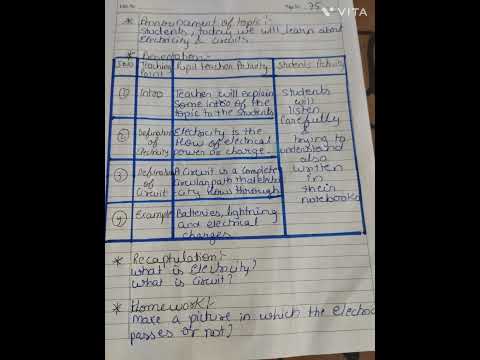 VITA
Page No. 75
* Announcement of topic:-
students, today we will learn about
Electricity & circuits.
* Presentation:-
S.No Teaching Point Pupil Teacher Activity Students Activity
① Intro Teacher will explain
some intro of the
topic to the students
② Defination
of
Electricity
Electricity is the
flow of electrical
power or charge.
③ Defination
of
Circuit
A Circuit is a complete
circular path that electri-
city flows through
④ Example Batteries, lightning
and electrical
charges
students
will
listen
carefully
&
trying to
understand
also
written
in
their
notebooks
* Recaptulation:-
what is Electricity?
what is circuit?
* Homework:-
Make a picture in which the electric
passes or not?